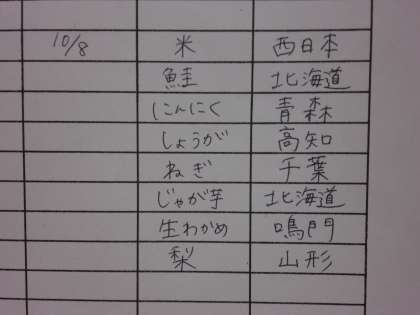 10/8 米 西日本
鮭 北海道
にんにく 青森
しょうが 高知
ねぎ 千葉
じゃが芋 北海道
生わかめ 鳴門
梨 山形